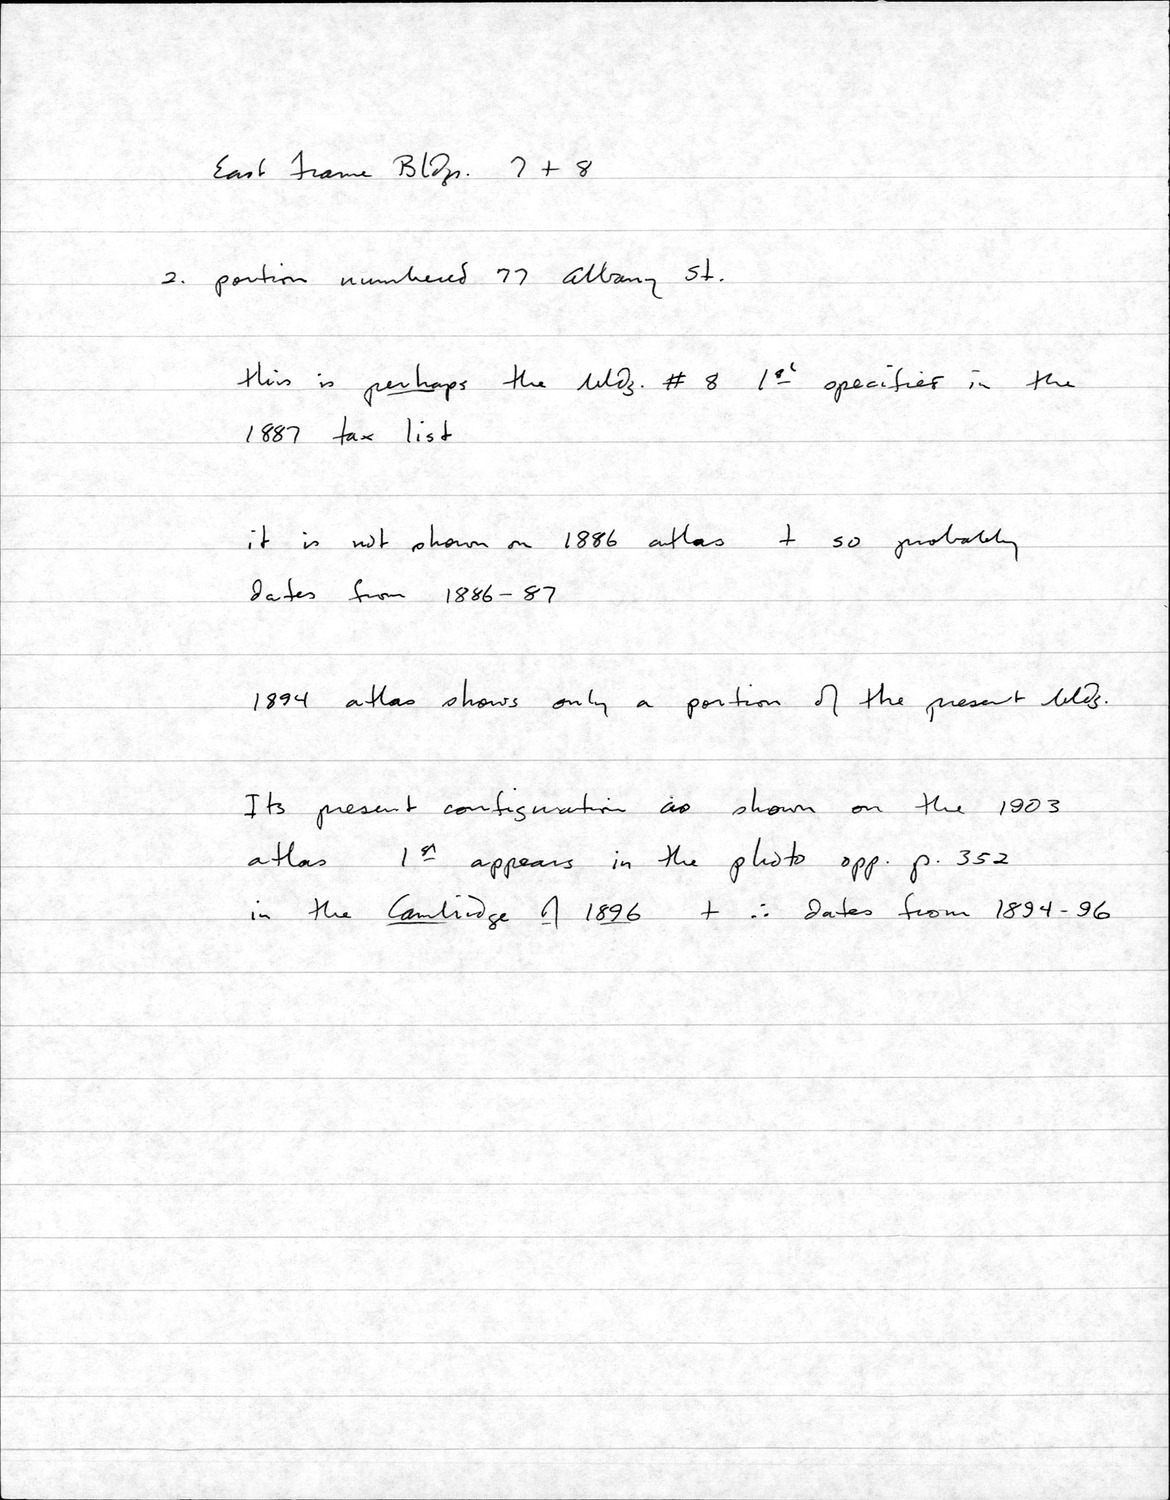 East Frame Bldgs. 7 + 8
2. portion numbered 77 Albany St.
this is perhaps the bldg. # 8 1st specified in the
1887 tax list
it is not shown on 1886 atlas + so probably
dates from 1886-87
1894 atlas shows only a portion of the present bldg.
Its present configuration as shown on the 1903
atlas 1st appears in the photo opp. p. 352
in the Cambridge of 1896 + ∴ dates from 1894-96